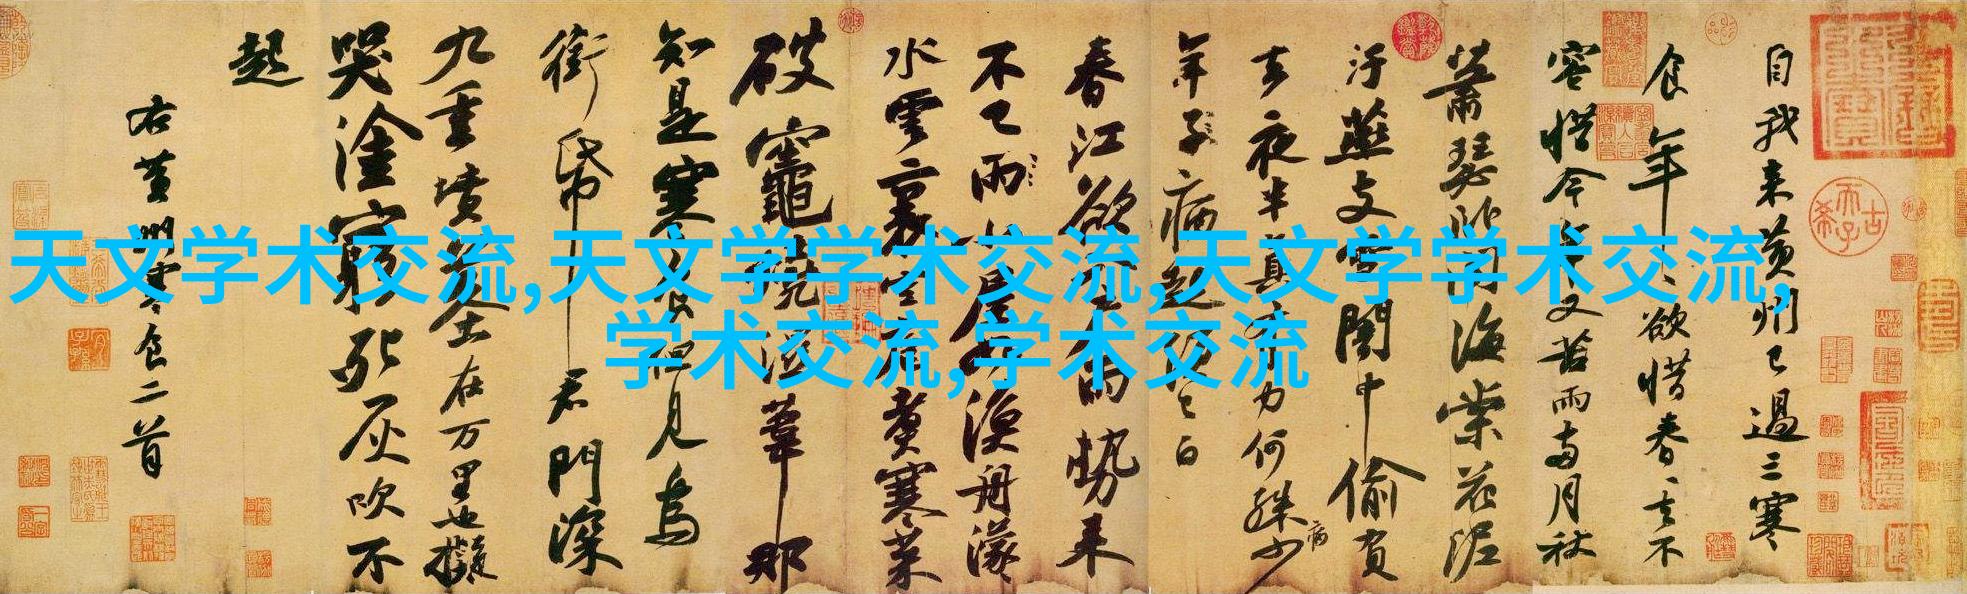 自我来黄州已過三寒
食年年欲惜春春去不
容惜今年又苦雨兩月秋
蕭瑟卧聞海棠花泥
汙燕支雪闇中偷負
去夜半真有力何殊少
年子病起須已白
春江欲入户雨勢来
不已雨小屋如漁舟濛濛
水雲裏空庖煮寒菜
破竈燒濕葦那
知是寒食但見烏
銜帋君門深
九重墳墓在万里也擬
哭塗窮死灰吹不
起
右黄州寒食二首
天文学术交流,天文学学术交流,天文学学术交流,
学术交流,学术交流